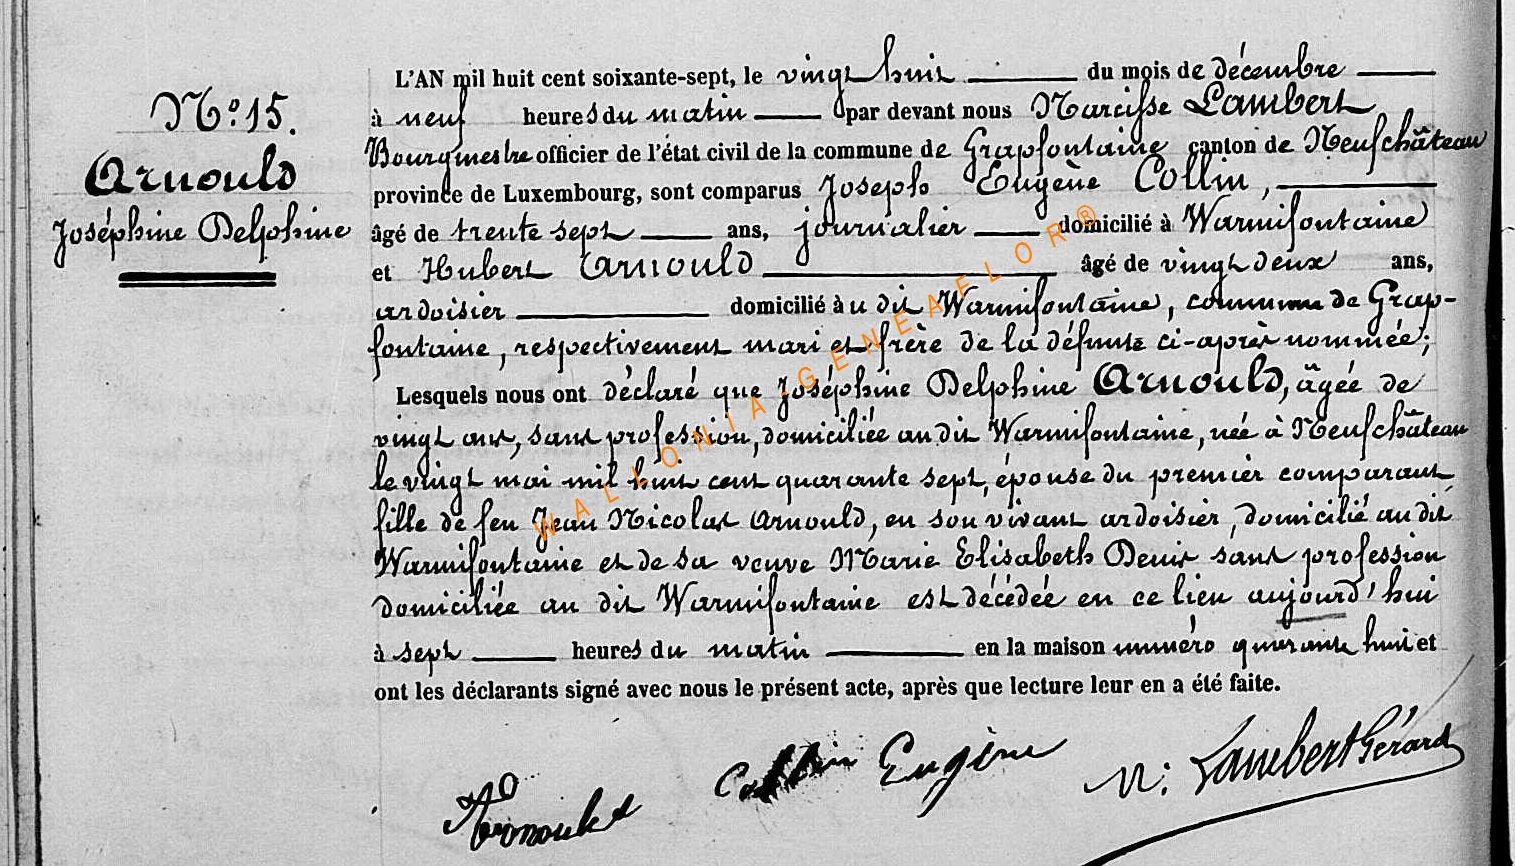 N° 15.
Arnould
Joséphine Delphine
L'AN mil huit cent soixante-sept, le vingt huit du mois de décembre
à neuf heures du matin par devant nous Narcisse Lambert
Bourgmestre officier de l'état civil de la commune de Grapfontaine canton de Neufchâteau
province de Luxembourg, sont comparus Joseph Eugène Collin,
âgé de trente sept ans, journalier domicilié à Warmifontaine
et Hubert Arnould âgé de vingt deux ans,
ardoisier domicilié àu dit Warmifontaine, commune de Grap-
fontaine, respectivement mari et frère de la défunte ci-après nommée;
Lesquels nous ont déclaré que Joséphine Delphine Arnould, âgée de
vingt ans, sans profession, domiciliée au dit Warmifontaine, née à Neufchâteau
le vingt mai mil huit cent quarante sept, épouse du premier comparant
fille de feu Jean Nicolas Arnould, en son vivant ardoisier, domicilié au dit
Warmifontaine et de sa veuve Marie Elisabeth Denis sans profession
domiciliée au dit Warmifontaine est décédée en ce lieu aujourd'hui
à sept heures du matin en la maison numéro quarante huit et
ont les déclarants signé avec nous le présent acte, après que lecture leur en a été faite.
Collin Eugène N. Lambert Gérard
WALLONIA-GENEAFLOR®